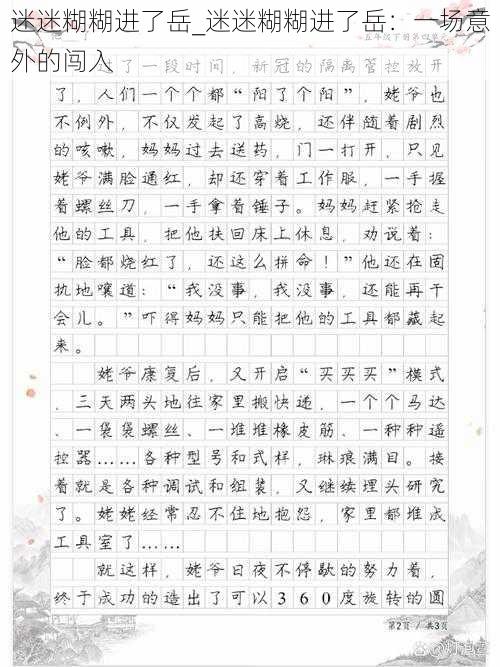 迷迷糊糊进了岳_迷迷糊糊进了岳：一场意
外的闯入
五年级下册第四单元
过了一段时间，新冠的隔离管控放开
了，人们一个个都“阳了个阳”，姥爷也
不例外，不仅发起了高烧，还伴随着剧烈
的咳嗽，妈妈过去送药，门一打开，只见
姥爷满脸通红，却还穿着工作服，一手握
着螺丝刀，一手拿着锤子。妈妈赶紧抢走
他的工具，把他扶回床上休息，劝说着：
“脸都烧红了，还这么拼命！”他还在固
执地嚷道：“我没事，我没事，还能再干
会儿。”吓得妈妈只能把他的工具都藏起
来。
姥爷康复后，又开启“买买买”模式
，三天两头地往家里搬快递，一个个马达
、一袋袋螺丝、一堆堆橡皮筋、一种种遥
控器……各种型号和式样，琳琅满目。接
着就是各种调试和组装，又继续埋头研究
了。姥姥经常忍不住地抱怨，家里都堆成
工具室了……
就这样，姥爷日夜不停歇的努力着，
终于成功的造出了可以360度旋转的圆
第2页 / 共3页